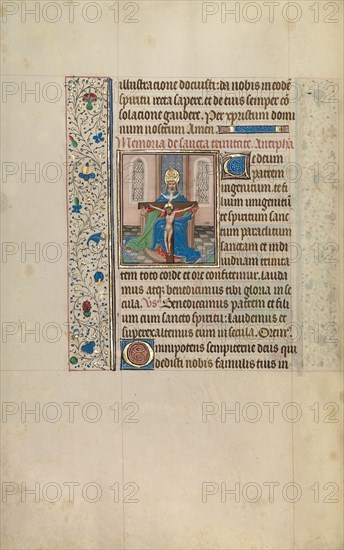 illustracione docuisti: da nobis in eodē
spiritu recta sapere. et de eius semper cō
solacione gaudere. Per xpristum domi
num nostrum Amen.
Memoria de sancta trinitate. Antiphā
Te deum
patrem
ingenitum. te fi
lium unigenitū
te spiritum sanc
tum paraclitum
sanctam et indi
uiduam trinita
tem toto corde et ore confitemur. lauda
mus atq; benedicimus tibi gloria in se
cula. Vs. Benedicamus patrem et fili
um cum sancto spiritu: Laudemus et
superexaltemus eum in secula. Orem9.
Omnipotens sempiterne deus qui
dedisti nobis famulis tuis in
PHOTO 12